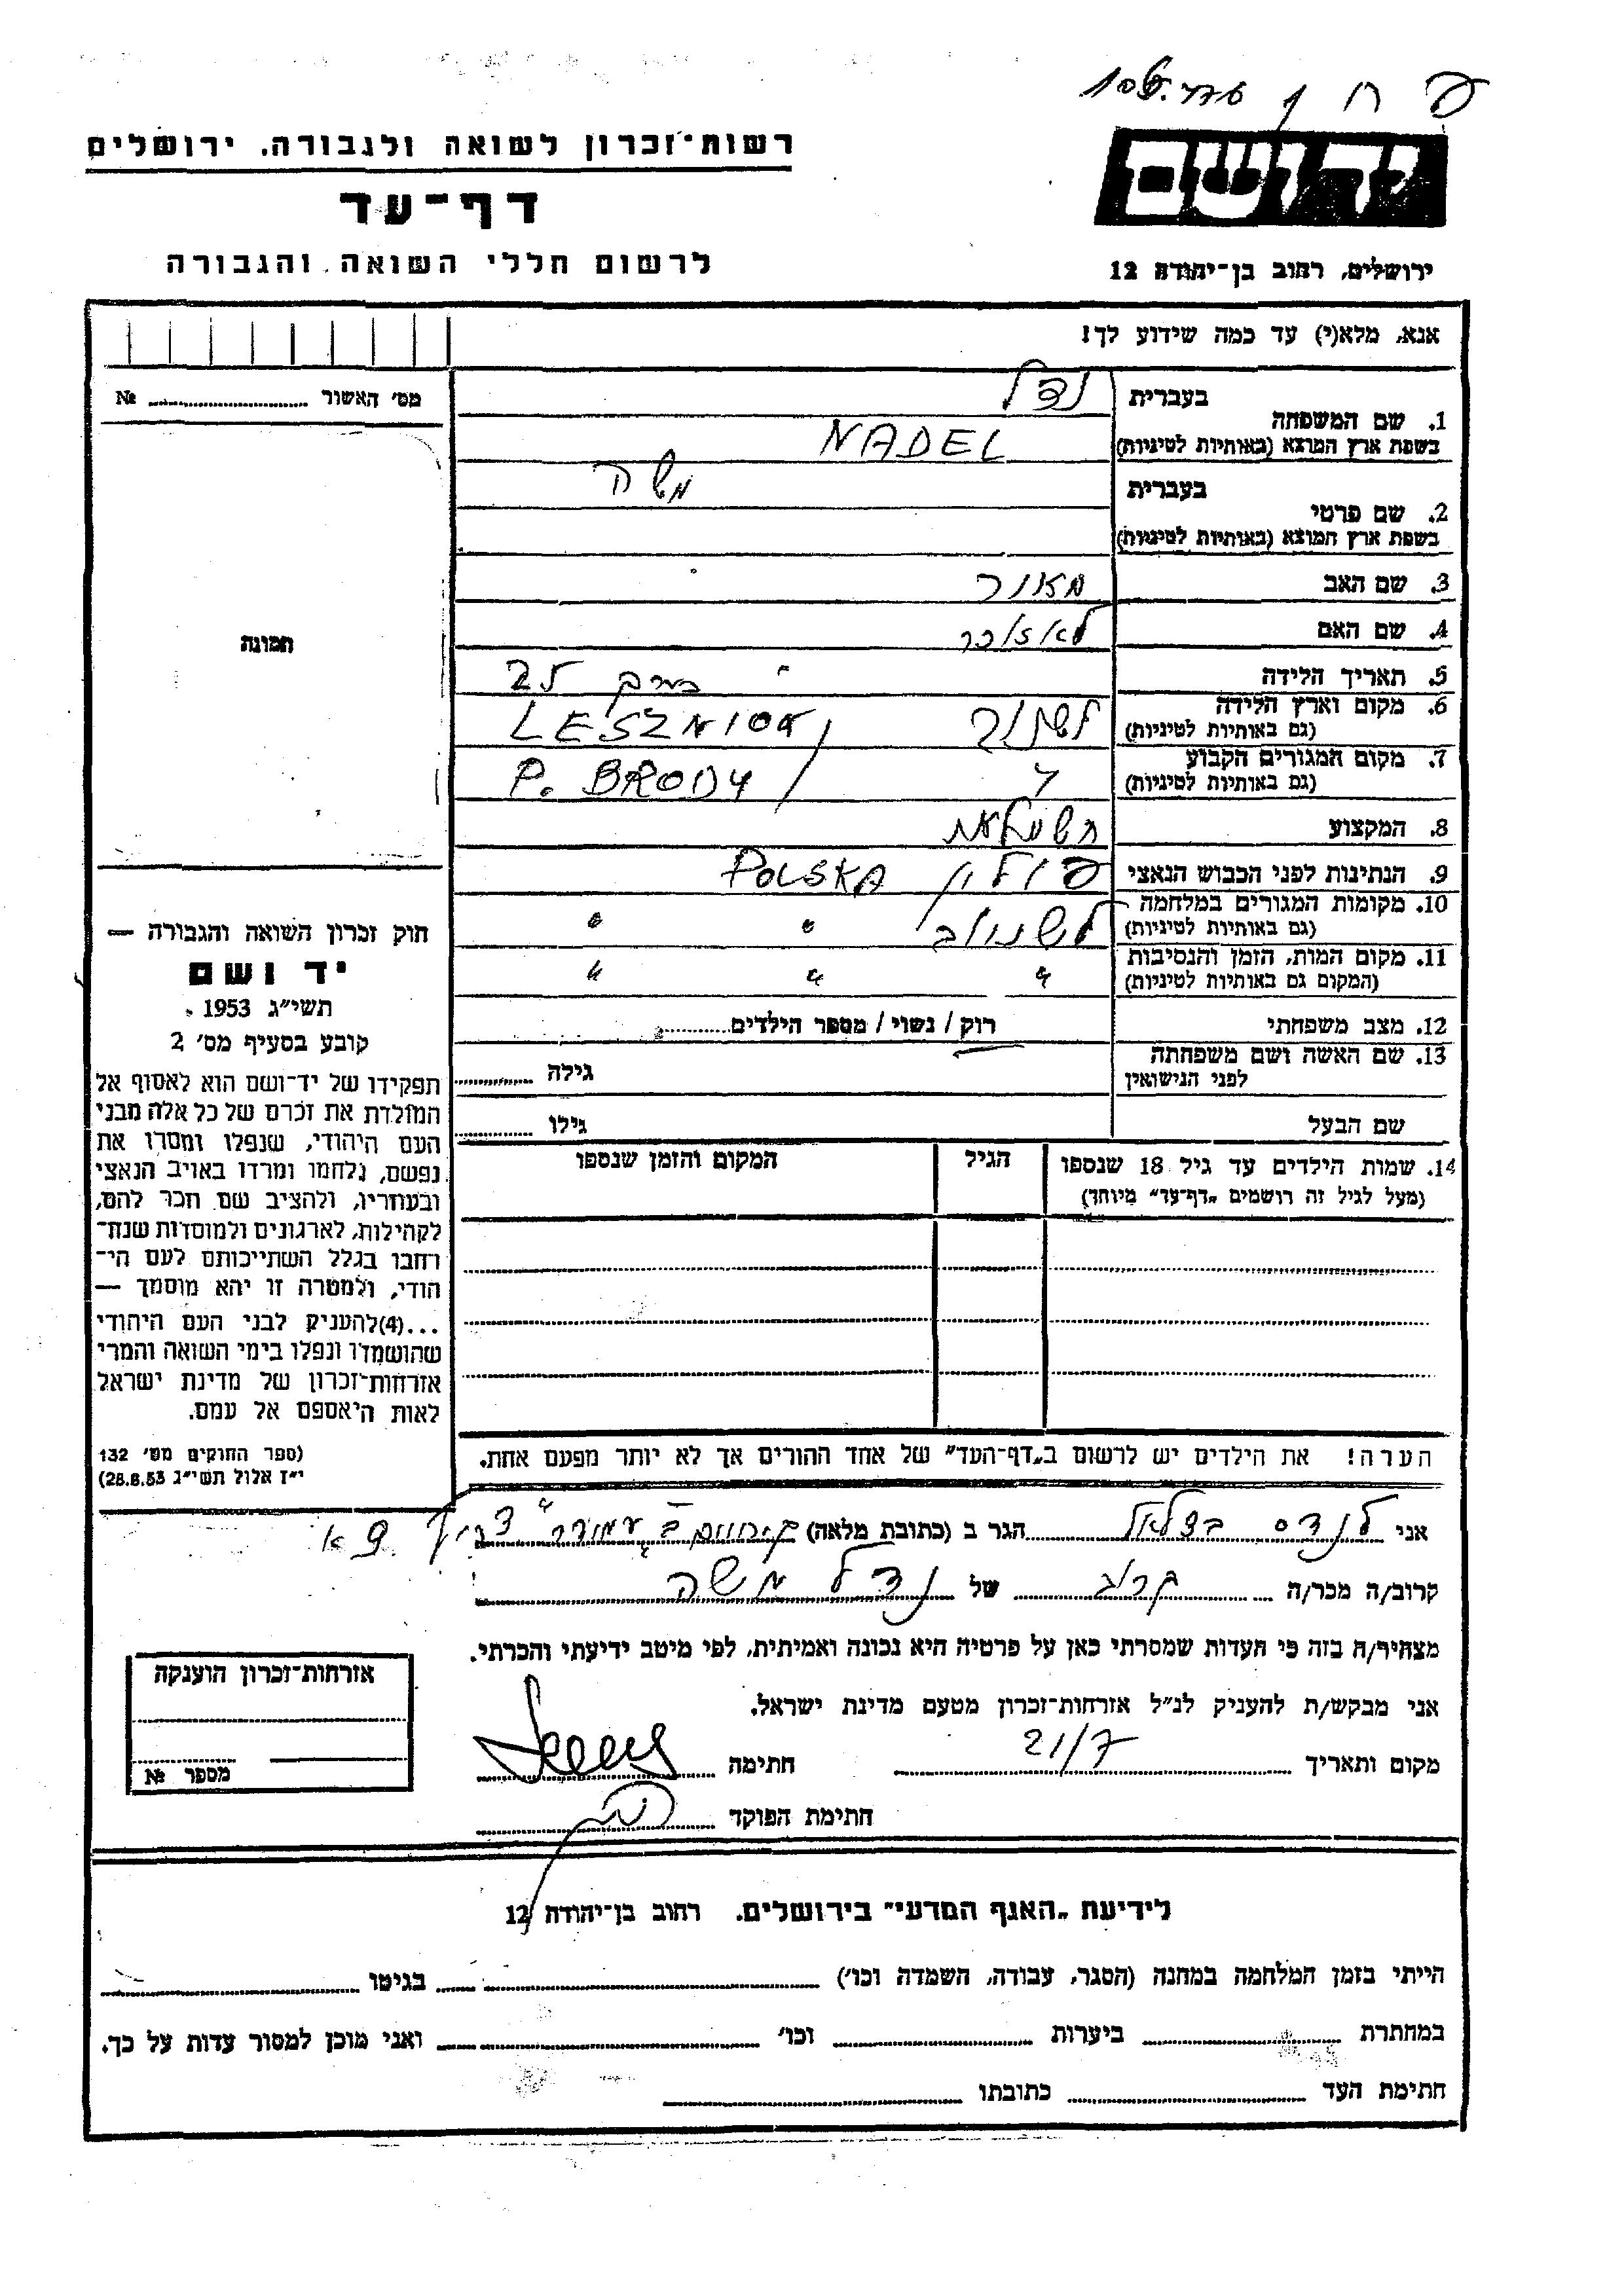 רשות־זכרון לשואה ולגבורה, ירושלים
יד ושם
דף־עד
לרשום חללי השואה והגבורה
ירושלים, רחוב בן־יהודה 12
אנא, מלא(י) עד כמה שידוע לך!
מס' האשור № 
1. שם המשפחה
בעברית נדל
בשפת ארץ המוצא (באותיות לטיניות) NADEL
2. שם פרטי
בעברית משה
בשפת ארץ המוצא (באותיות לטיניות)
3. שם האב מאיר
4. שם האם
5. תאריך הלידה 25
6. מקום וארץ הלידה
(גם באותיות לטיניות) LESZNIOW
7. מקום המגורים הקבוע
(גם באותיות לטיניות) " P. BRODY
8. המקצוע
9. הנתינות לפני הכבוש הנאצי פולין POLSKA
10. מקומות המגורים במלחמה
(גם באותיות לטיניות) לשניוב " "
11. מקום המות, הזמן והנסיבות
(המקום גם באותיות לטיניות) " " "
12. מצב משפחתי רווק / נשוי / מספר הילדים
13. שם האשה ושם משפחתה
לפני הנישואין גילה
שם הבעל גילו
14. שמות הילדים עד גיל 18 שנספו
(מעל לגיל זה רושמים „דף־עד" מיוחד)
הגיל
המקום והזמן שנספו
הערה! את הילדים יש לרשום ב„דף־העד" של אחד ההורים אך לא יותר מפעם אחת.
תמונה
חוק זכרון השואה והגבורה —
יד ושם
תשי"ג 1953
קובע בסעיף מס' 2
תפקידו של יד־ושם הוא לאסוף אל
המולדת את זכרם של כל אלה מבני
העם היהודי, שנפלו ומסרו את
נפשם, נלחמו ומרדו באויב הנאצי
ובעוזריו, ולהציב שם וזכר להם,
לקהילות, לארגונים ולמוסדות שנח־
רבו בגלל השתייכותם לעם הי־
הודי, ולמטרה זו יהא מוסמך —
...(4)להעניק לבני העם היהודי
שהושמדו ונפלו בימי השואה והמרי
אזרחות־זכרון של מדינת ישראל
לאות היאספם אל עמם.
(ספר החוקים מס' 132
י"ז אלול תשי"ג 28.8.53)
אני לנדס בצלאל הגר ב (כתובת מלאה)
קרוב/ה מכר/ה קרוב של נדל משה
מצהיר/ה בזה כי העדות שמסרתי כאן על פרטיה היא נכונה ואמיתית, לפי מיטב ידיעתי והכרתי.
אני מבקש/ת להעניק לנ"ל אזרחות־זכרון מטעם מדינת ישראל.
מקום ותאריך 21/7 חתימה
חתימת הפוקד
אזרחות־זכרון הוענקה
מספר №
לידיעת „האגף המדעי" בירושלים, רחוב בן־יהודה 12
הייתי בזמן המלחמה במחנה (הסגר, עבודה, השמדה וכו') בגיטו
במחתרת ביערות וכו' ואני מוכן למסור עדות על כך.
חתימת העד כתובתו